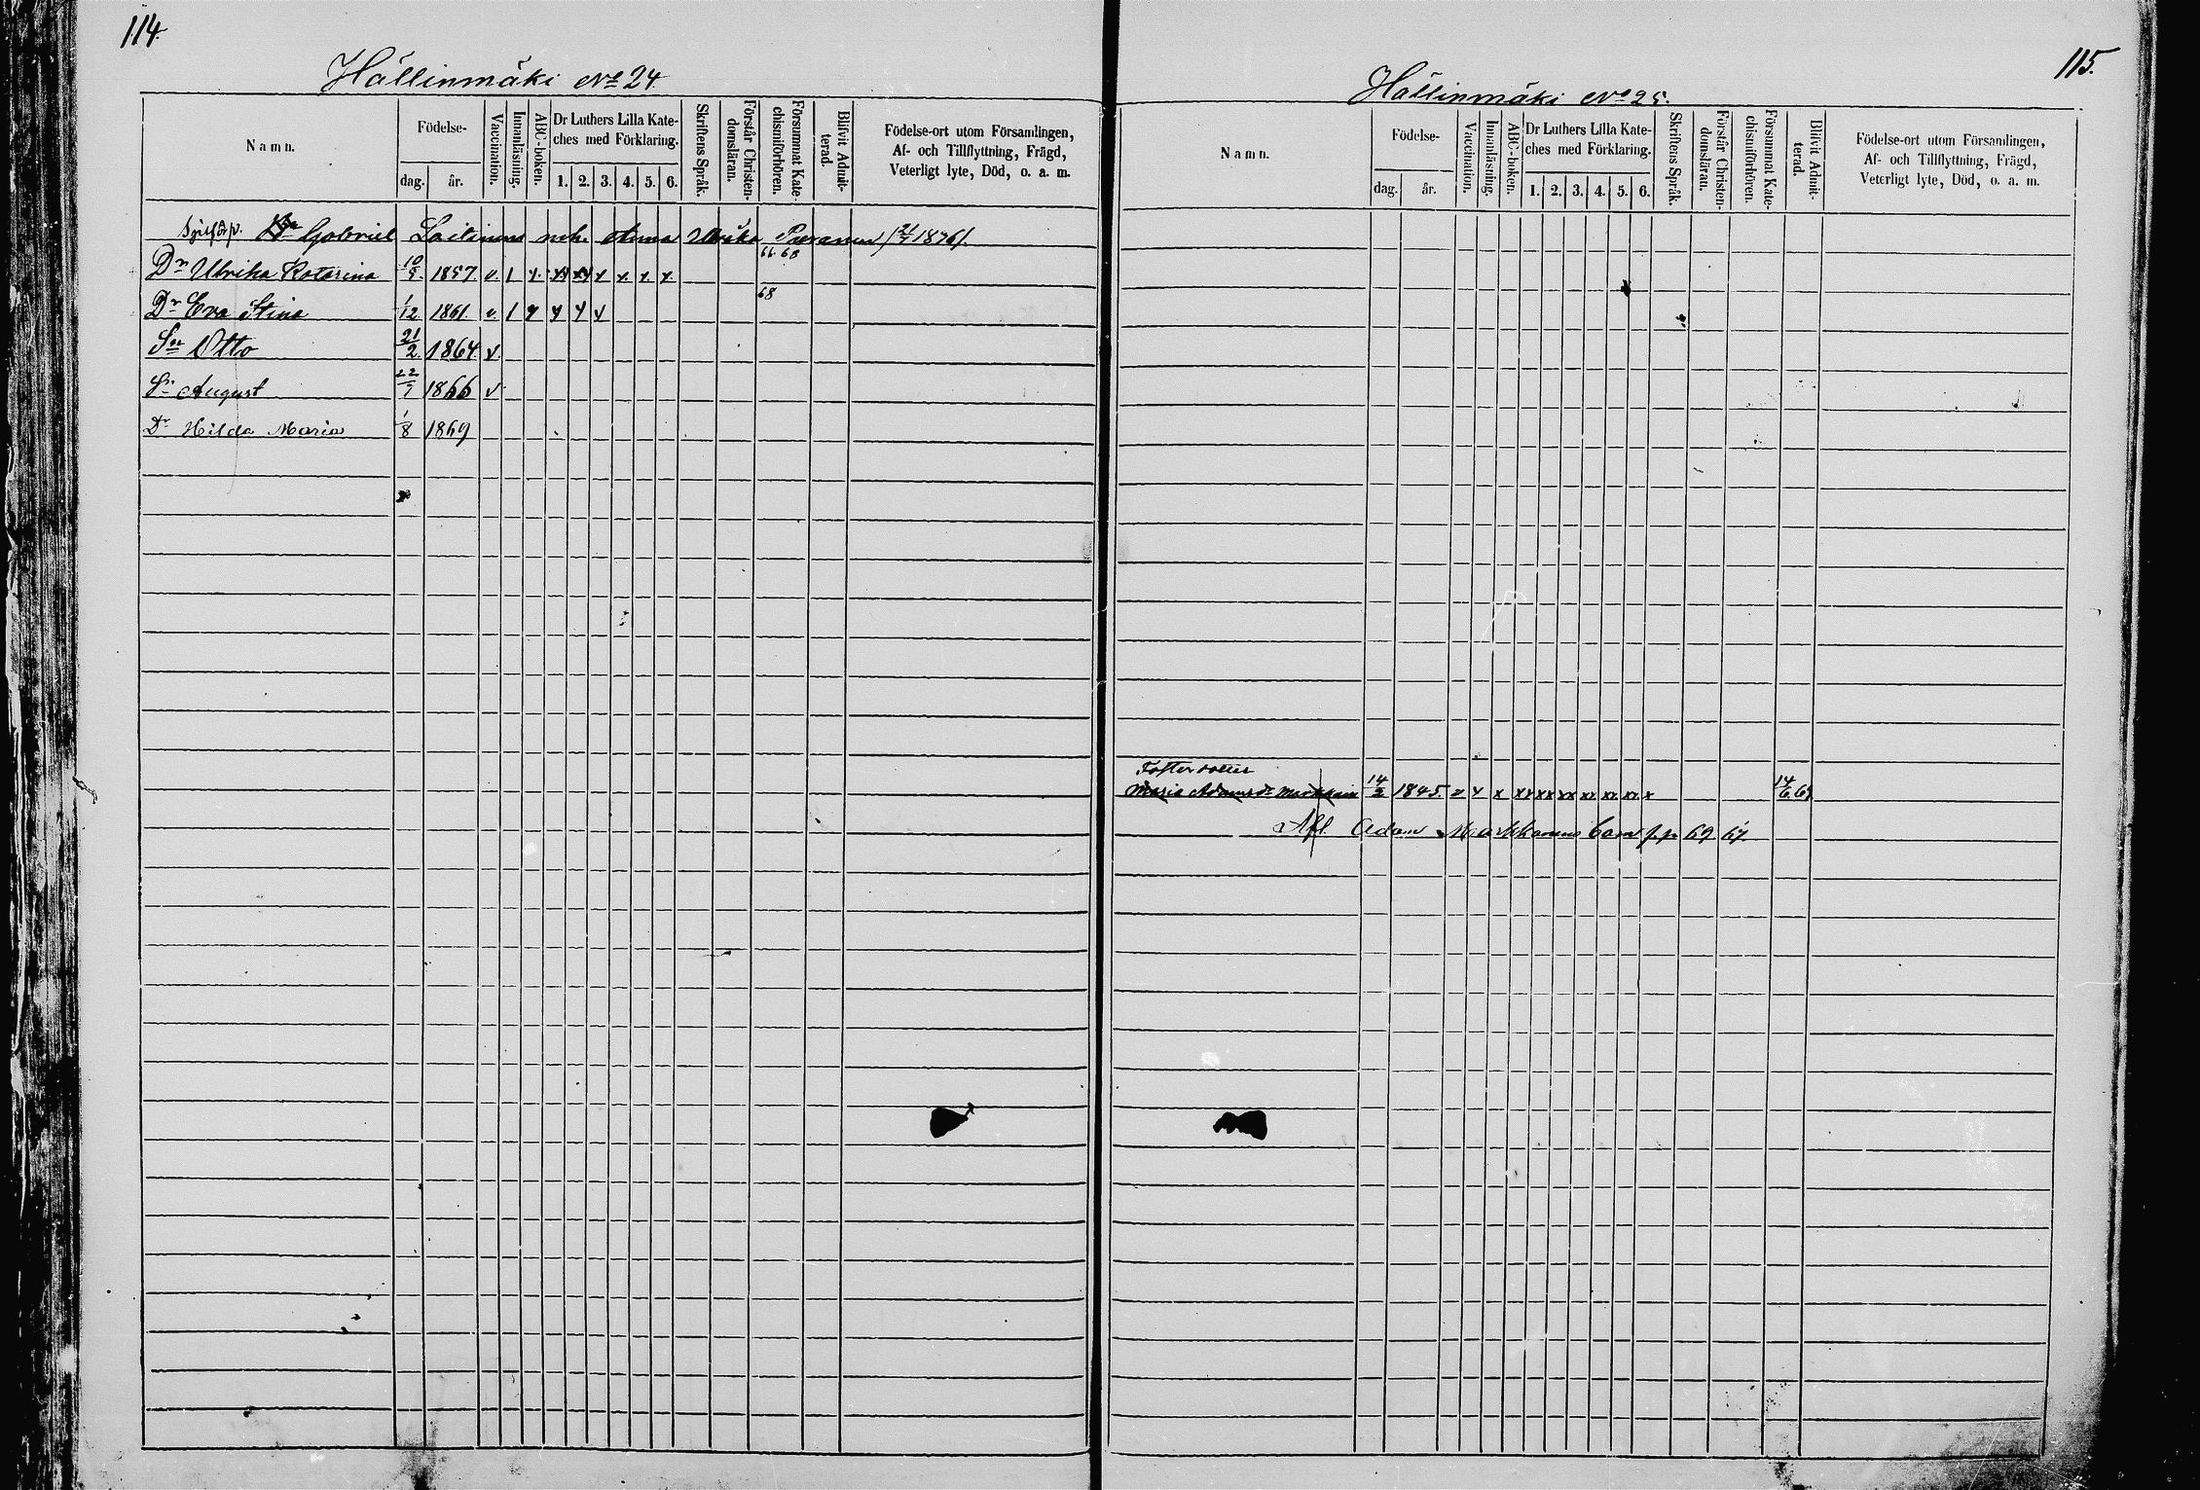 114.
Hällinmäki No 24.
Namn.
Födelse-
dag.
år.
Vaccination.
Innanläsning.
ABC-boken.
Dr Luthers Lilla Kate-
ches med Förklaring.
1. 2. 3. 4. 5. 6.
Skriftens Språk.
Förstår Christen-
domsläran.
Försummat Kate-
chismiförhören.
Blifvit Admit-
terad.
Födelse-ort utom Församlingen,
Af- och Tillflyttning, Frägd,
Veterligt lyte, Död, o. a. m.
Gabriel Laitinens och Anna Ulrika
66. 68
Dr Ulrika Katarina 10/9. 1857. v. 1 x. x x x x. x. x.
68
Dr Eva Stina 1/12 1861. v. 1 y y y y
Sn Otto 21/2. 1864. v.
Sn August 22/7 1866 v.
Dr Hilda Maria 1/8 1869
115.
Hällinmäki No 25.
Namn.
Födelse-
dag.
år.
Vaccination.
Innanläsning.
ABC-boken.
Dr Luthers Lilla Kate-
ches med Förklaring.
1. 2. 3. 4. 5. 6.
Skriftens Språk.
Förstår Christen-
domsläran.
Försummat Kate-
chismiförhören.
Blifvit Admit-
terad.
Födelse-ort utom Församlingen,
Af- och Tillflyttning, Frägd,
Veterligt lyte, Död, o. a. m.
Fosterdotter
Maria Adamsdr 14/2 1845. v x x xx xx xx xx xx xx x 14/6 63
Afl. Adam Markkanens barn